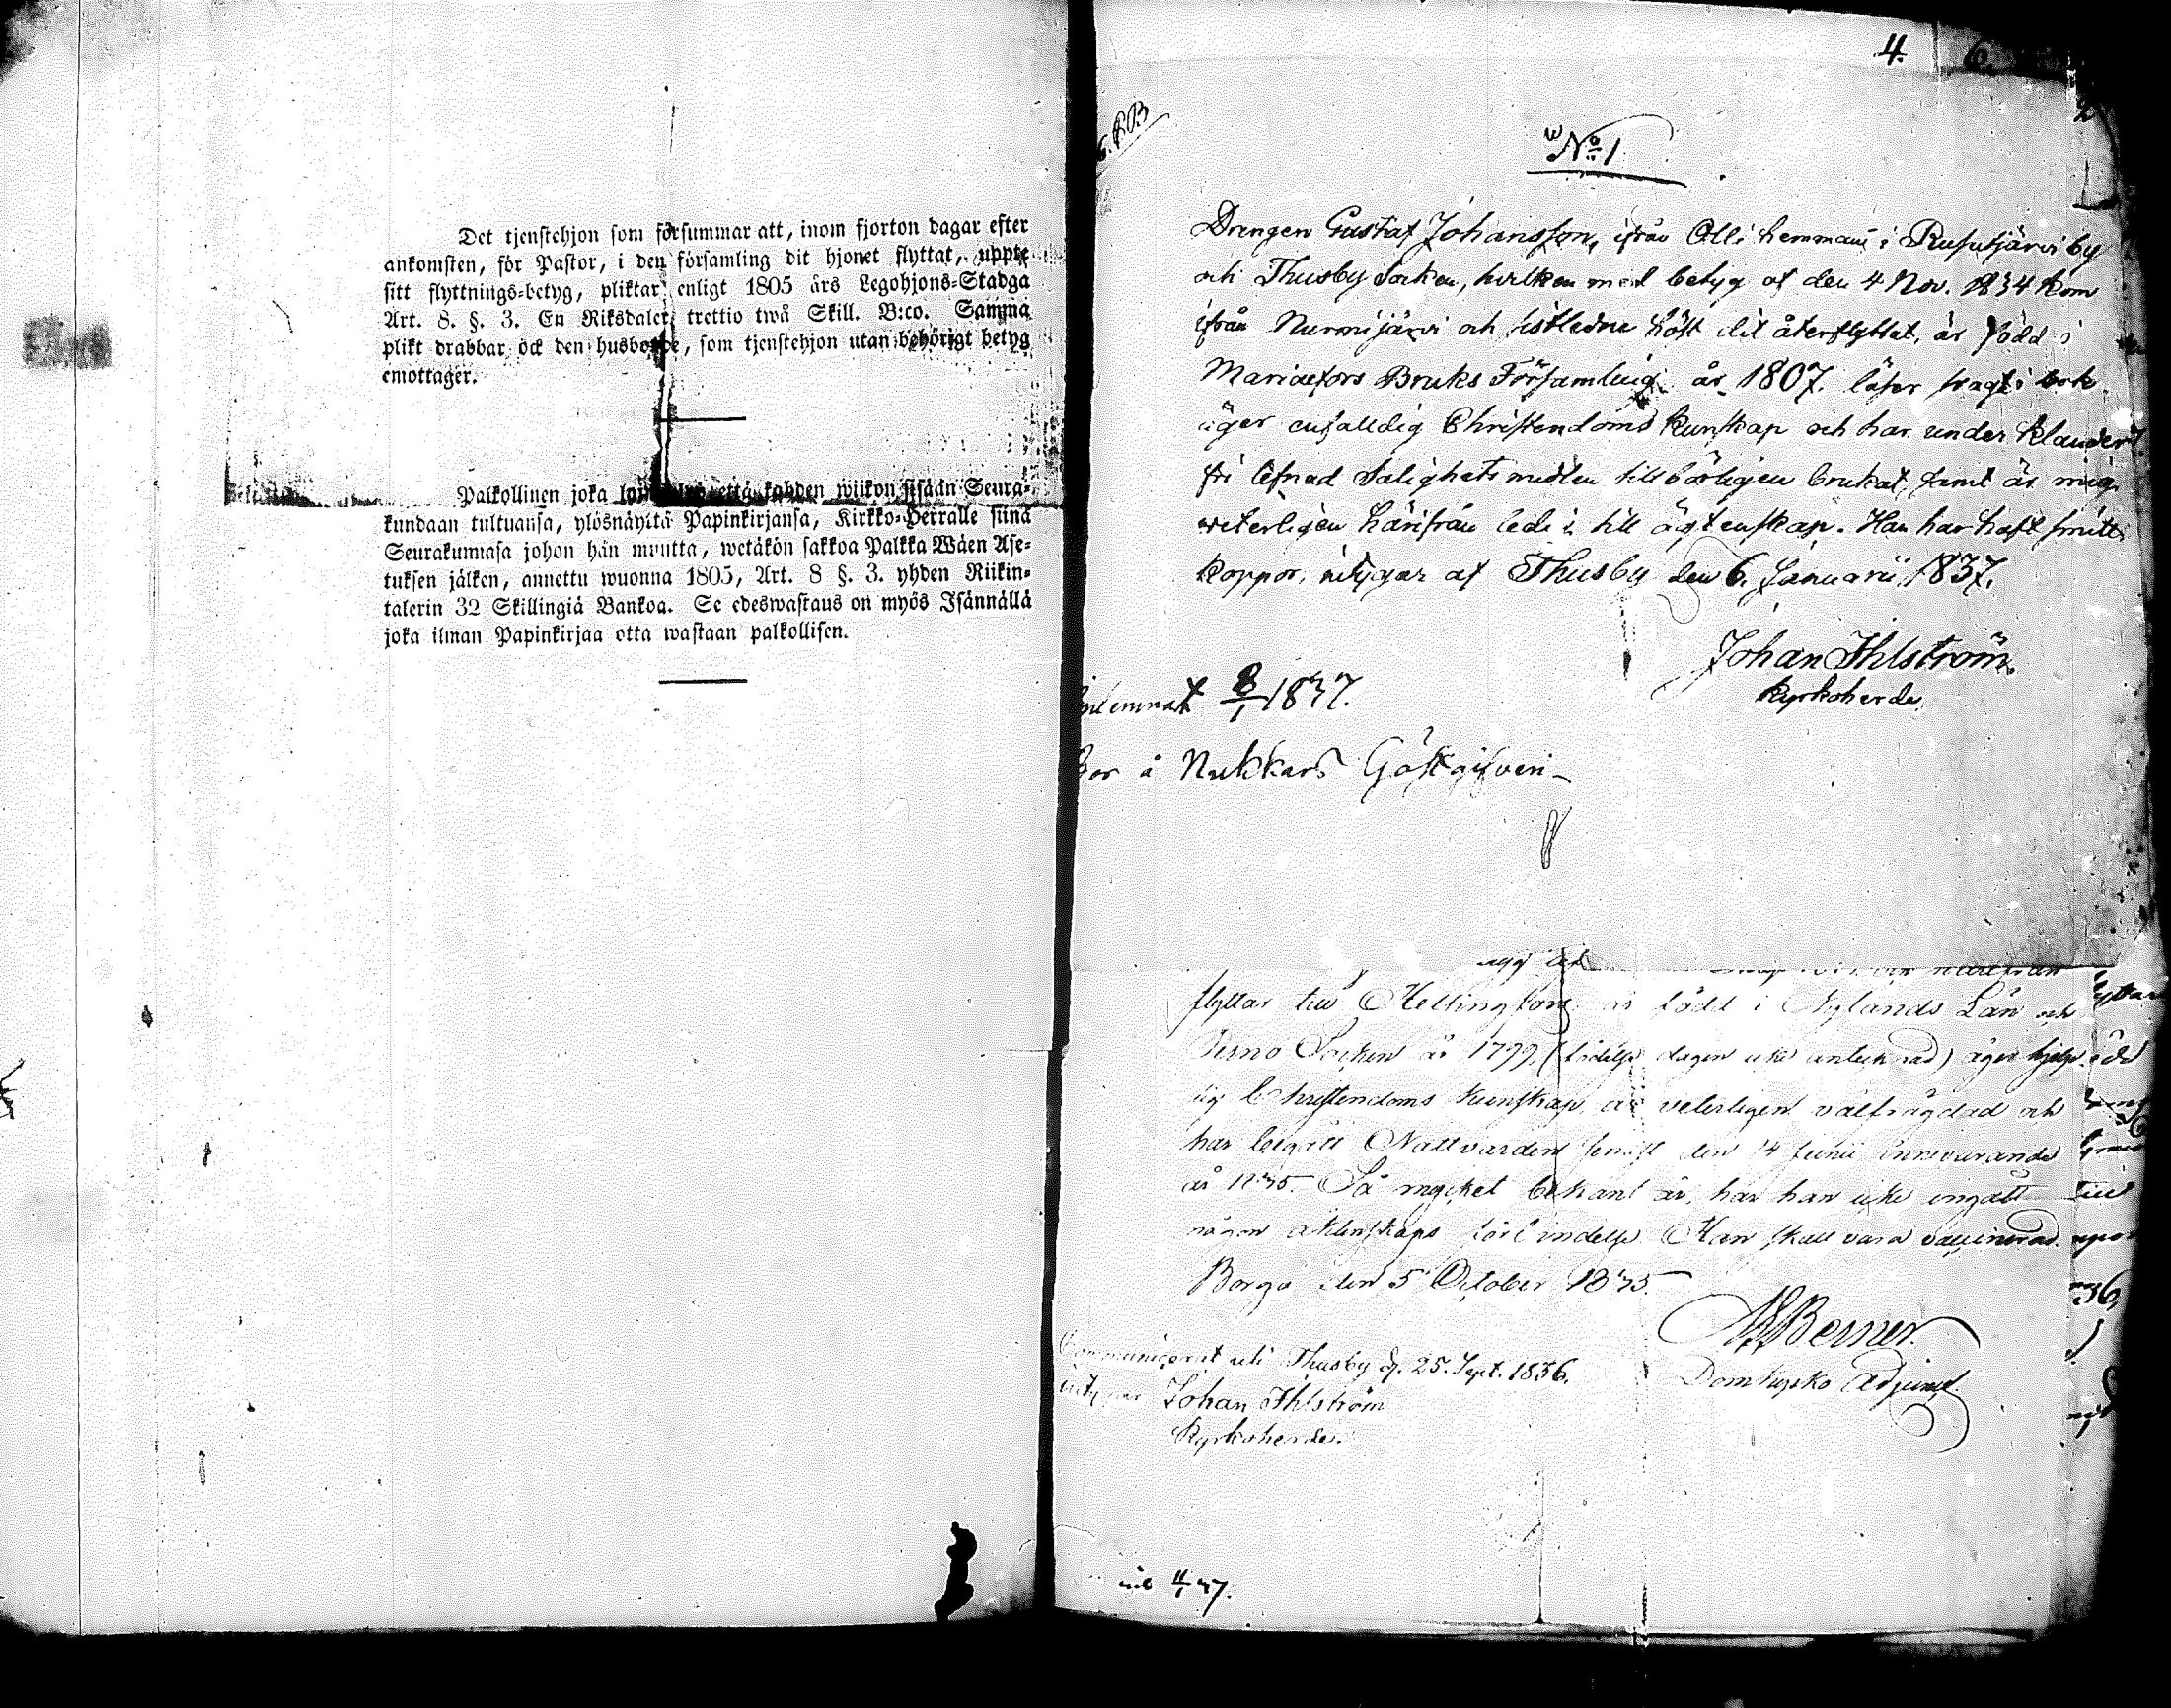 Det tjenstehjon som försummar att, inom fjorton dagar efter
ankomsten, för Pastor, i den församling dit hjonet flyttat, uppte
sitt flyttnings-betyg, pliktar enligt 1805 års Legohjons-Stadga
Art. 8. §. 3. En Riksdaler trettio twå Skill. B:co. Samma
plikt drabbar ock den husbonde, som tjenstehjon utan behörigt betyg
emottager.
Palkollinen joka että kahden wiikon sisään Seura-
kundaan tultuansa, ylösnäyttä Papinkirjansa, Kirkko-Herralle siinä
Seurakunnasa johon hän muutta, wetäkön sakkoa Palkka Wäen Ase-
tuksen jälken, annettu wuonna 1805, Art. 8 §. 3. yhden Riikin-
talerin 32 Skillingiä Bankoa. Se edeswastaus on myös Isännällä
joka ilman Papinkirjaa otta wastaan palkollisen.
4. 6.
No 1
Drengen Gustaf Johansson, ifrån Olli hemman i Rusutjärvi by
och Thusby Socken, hvilken med betyg af den 4 Nov. 1834 kom
ifrån Nurmijärvi och sistledne höst dit återflyttat, är född i
Mariaefors Bruks Församling år 1807. läser i bok
äger enfalldig Christendoms kunskap och har under klander
fri lefnad Salighets medlen tillbörligen brukat, samt är mig
veterligen härifrån ledi till ägtenskap. Han har haft
koppor, intygar af Thusby den 6. Januarii 1837.
Johan Ihlström
Kyrkoherde.
inlemnat 8/1 1837.
bor å Nukkars Gästgifveri
flyttar till Helsingfors är född i Nylands Län och
Perno Socken år 1799, (födelse dagen icke antecknad) äger hjelp
lig Christendoms kunskap, är veterligen välfrägdad och
har begått Nattvarden senast den 14 Junii innevarande
år 1835. Så mycket bekant är, har han icke ingått
någon äktenskaps förbindelse. Han skall vara vaccinerad.
Borgå den 5 October 1835.
Berner.
Domkyrko Adjunct.
Communicerat uti Thusby d. 25. Sept. 1836.
Johan Ihlström
Kyrkoherde.
11/1 37.